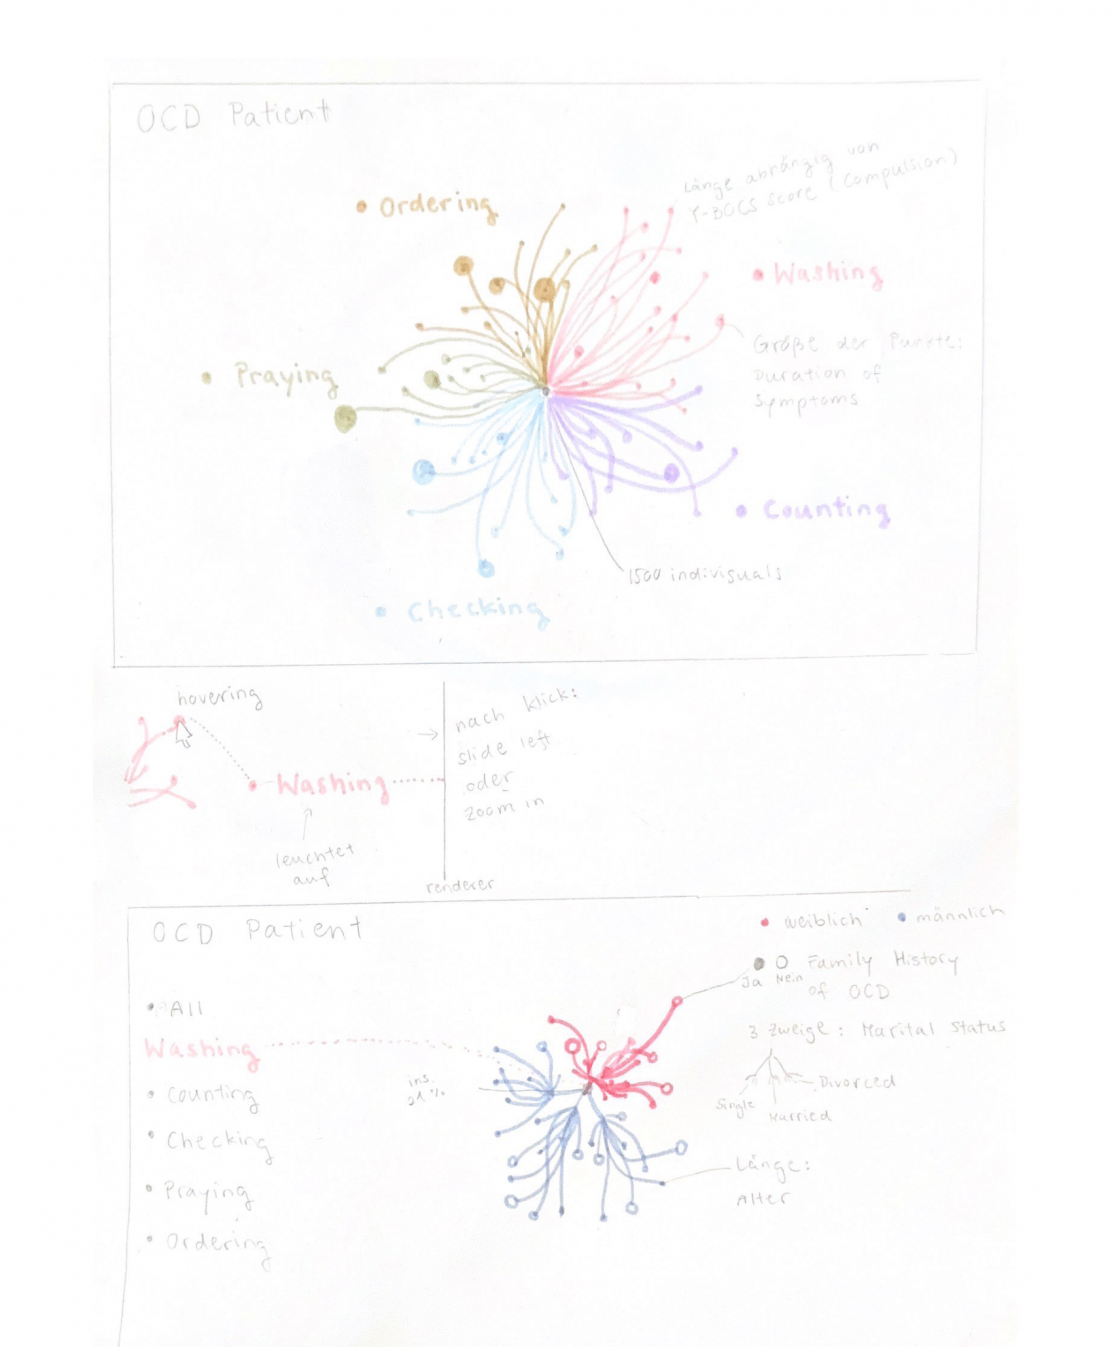 OCD Patient
Länge abhängig von
Y-BOCS Score (Compulsion)
Ordering
Washing
Größe der Punkte:
Duration of
Symptoms
Praying
Counting
1500 indivisuals
Checking
hovering
Washing
leuchtet
auf
nach klick:
slide left
oder
zoom in
renderer
OCD Patient
weiblich
männlich
Ja Nein
Family History
of OCD
All
Washing
Counting
Checking
Praying
Ordering
ins.
%
3 Zweige: Marital Status
Single
Married
Divorced
Länge:
Alter